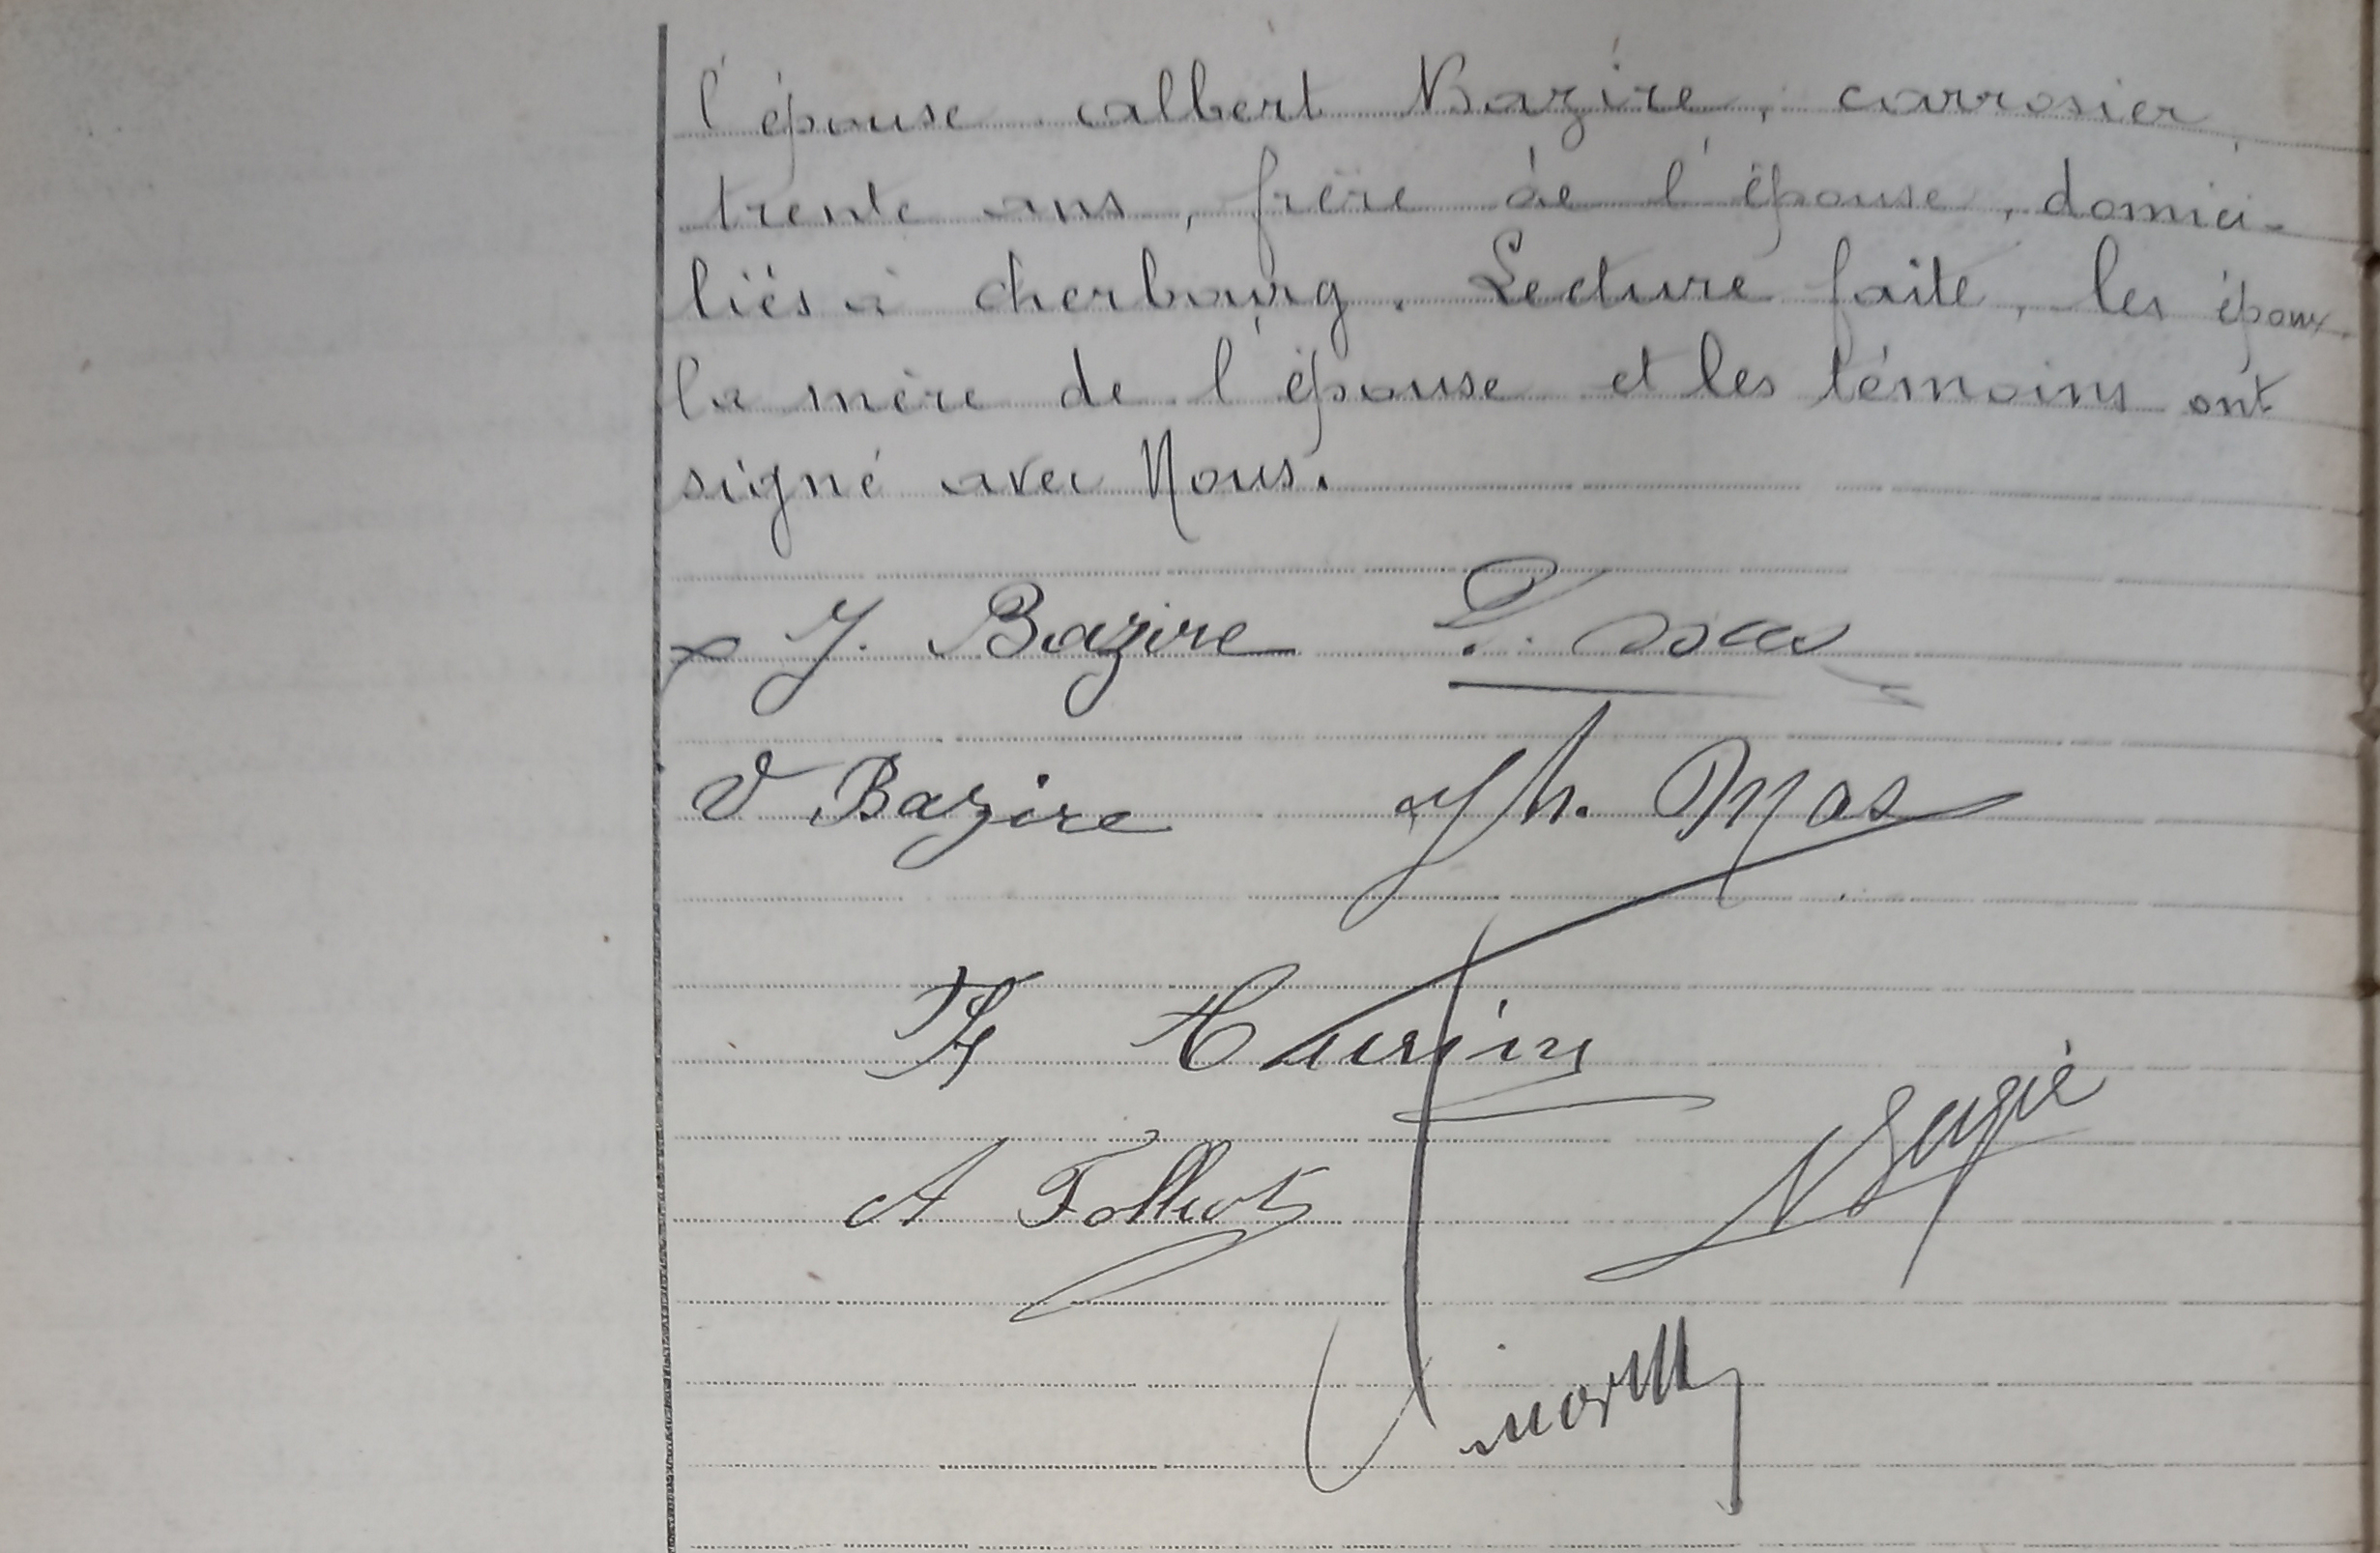 l'épouse albert Bazire, carrosier,
trente ans, frère de l'épouse, domici-
liés à cherbourg. Lecture faite, les époux
la mère de l'épouse et les témoins ont
signé avec Nous.
J. Bazire
V Bazire Jh. Mas
A Folliot